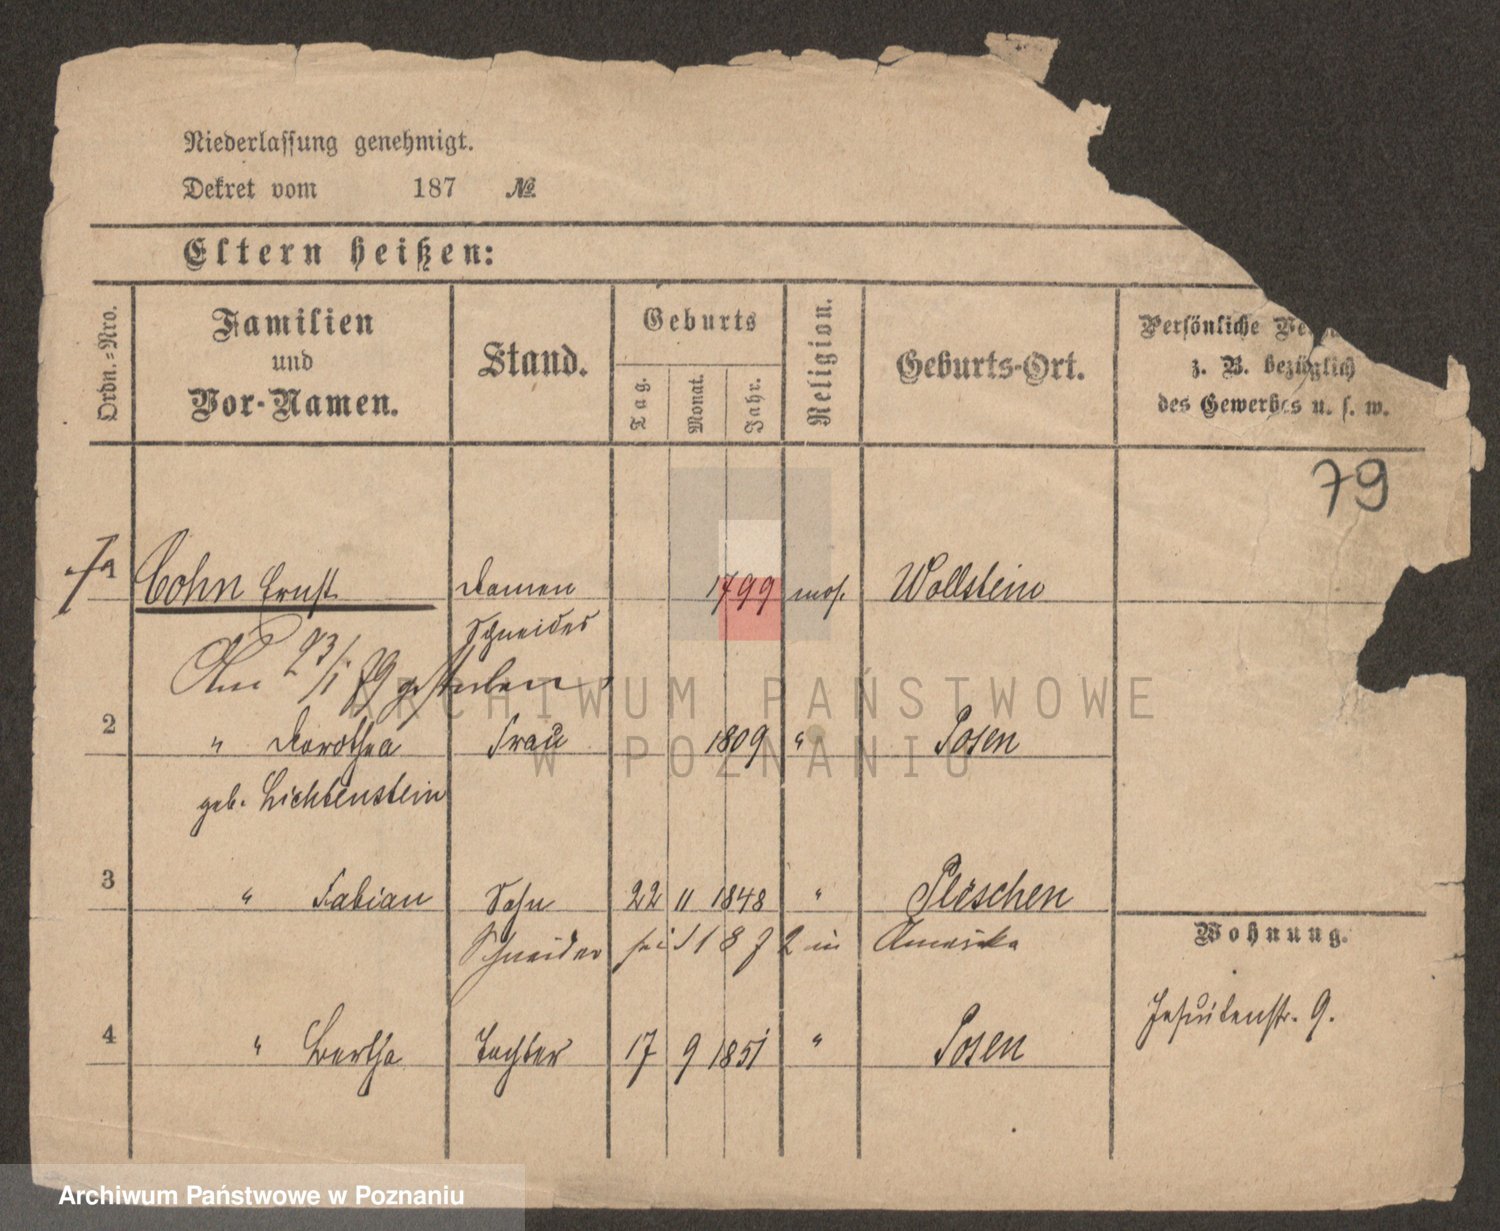 Niederlassung genehmigt.
Dekret vom 187 №
Eltern heißen:
Ordn.-Nro. Familien und Vor-Namen. Stand. Geburts Tag. Monat. Jahr. Religion. Geburts-Ort. Persönliche z. B. bezüglich des Gewerbes u. s. w.
79
1 Cohn Ernst Damen 1799 mos. Wollstein
Schneider
Am 23/1 79 gestorben
2 " Dorothea Frau 1809 " Posen
geb. Lichtenstein
3 " Fabian Sohn 22 11 1848 " Pleschen
Schneider seit 1872 in Amerika
Wohnung.
Jesuitenstr. 9.
4 " Bertha Tochter 17 9 1851 " Posen
ARCHIWUM PAŃSTWOWE
W POZNANIU
Archiwum Państwowe w Poznaniu